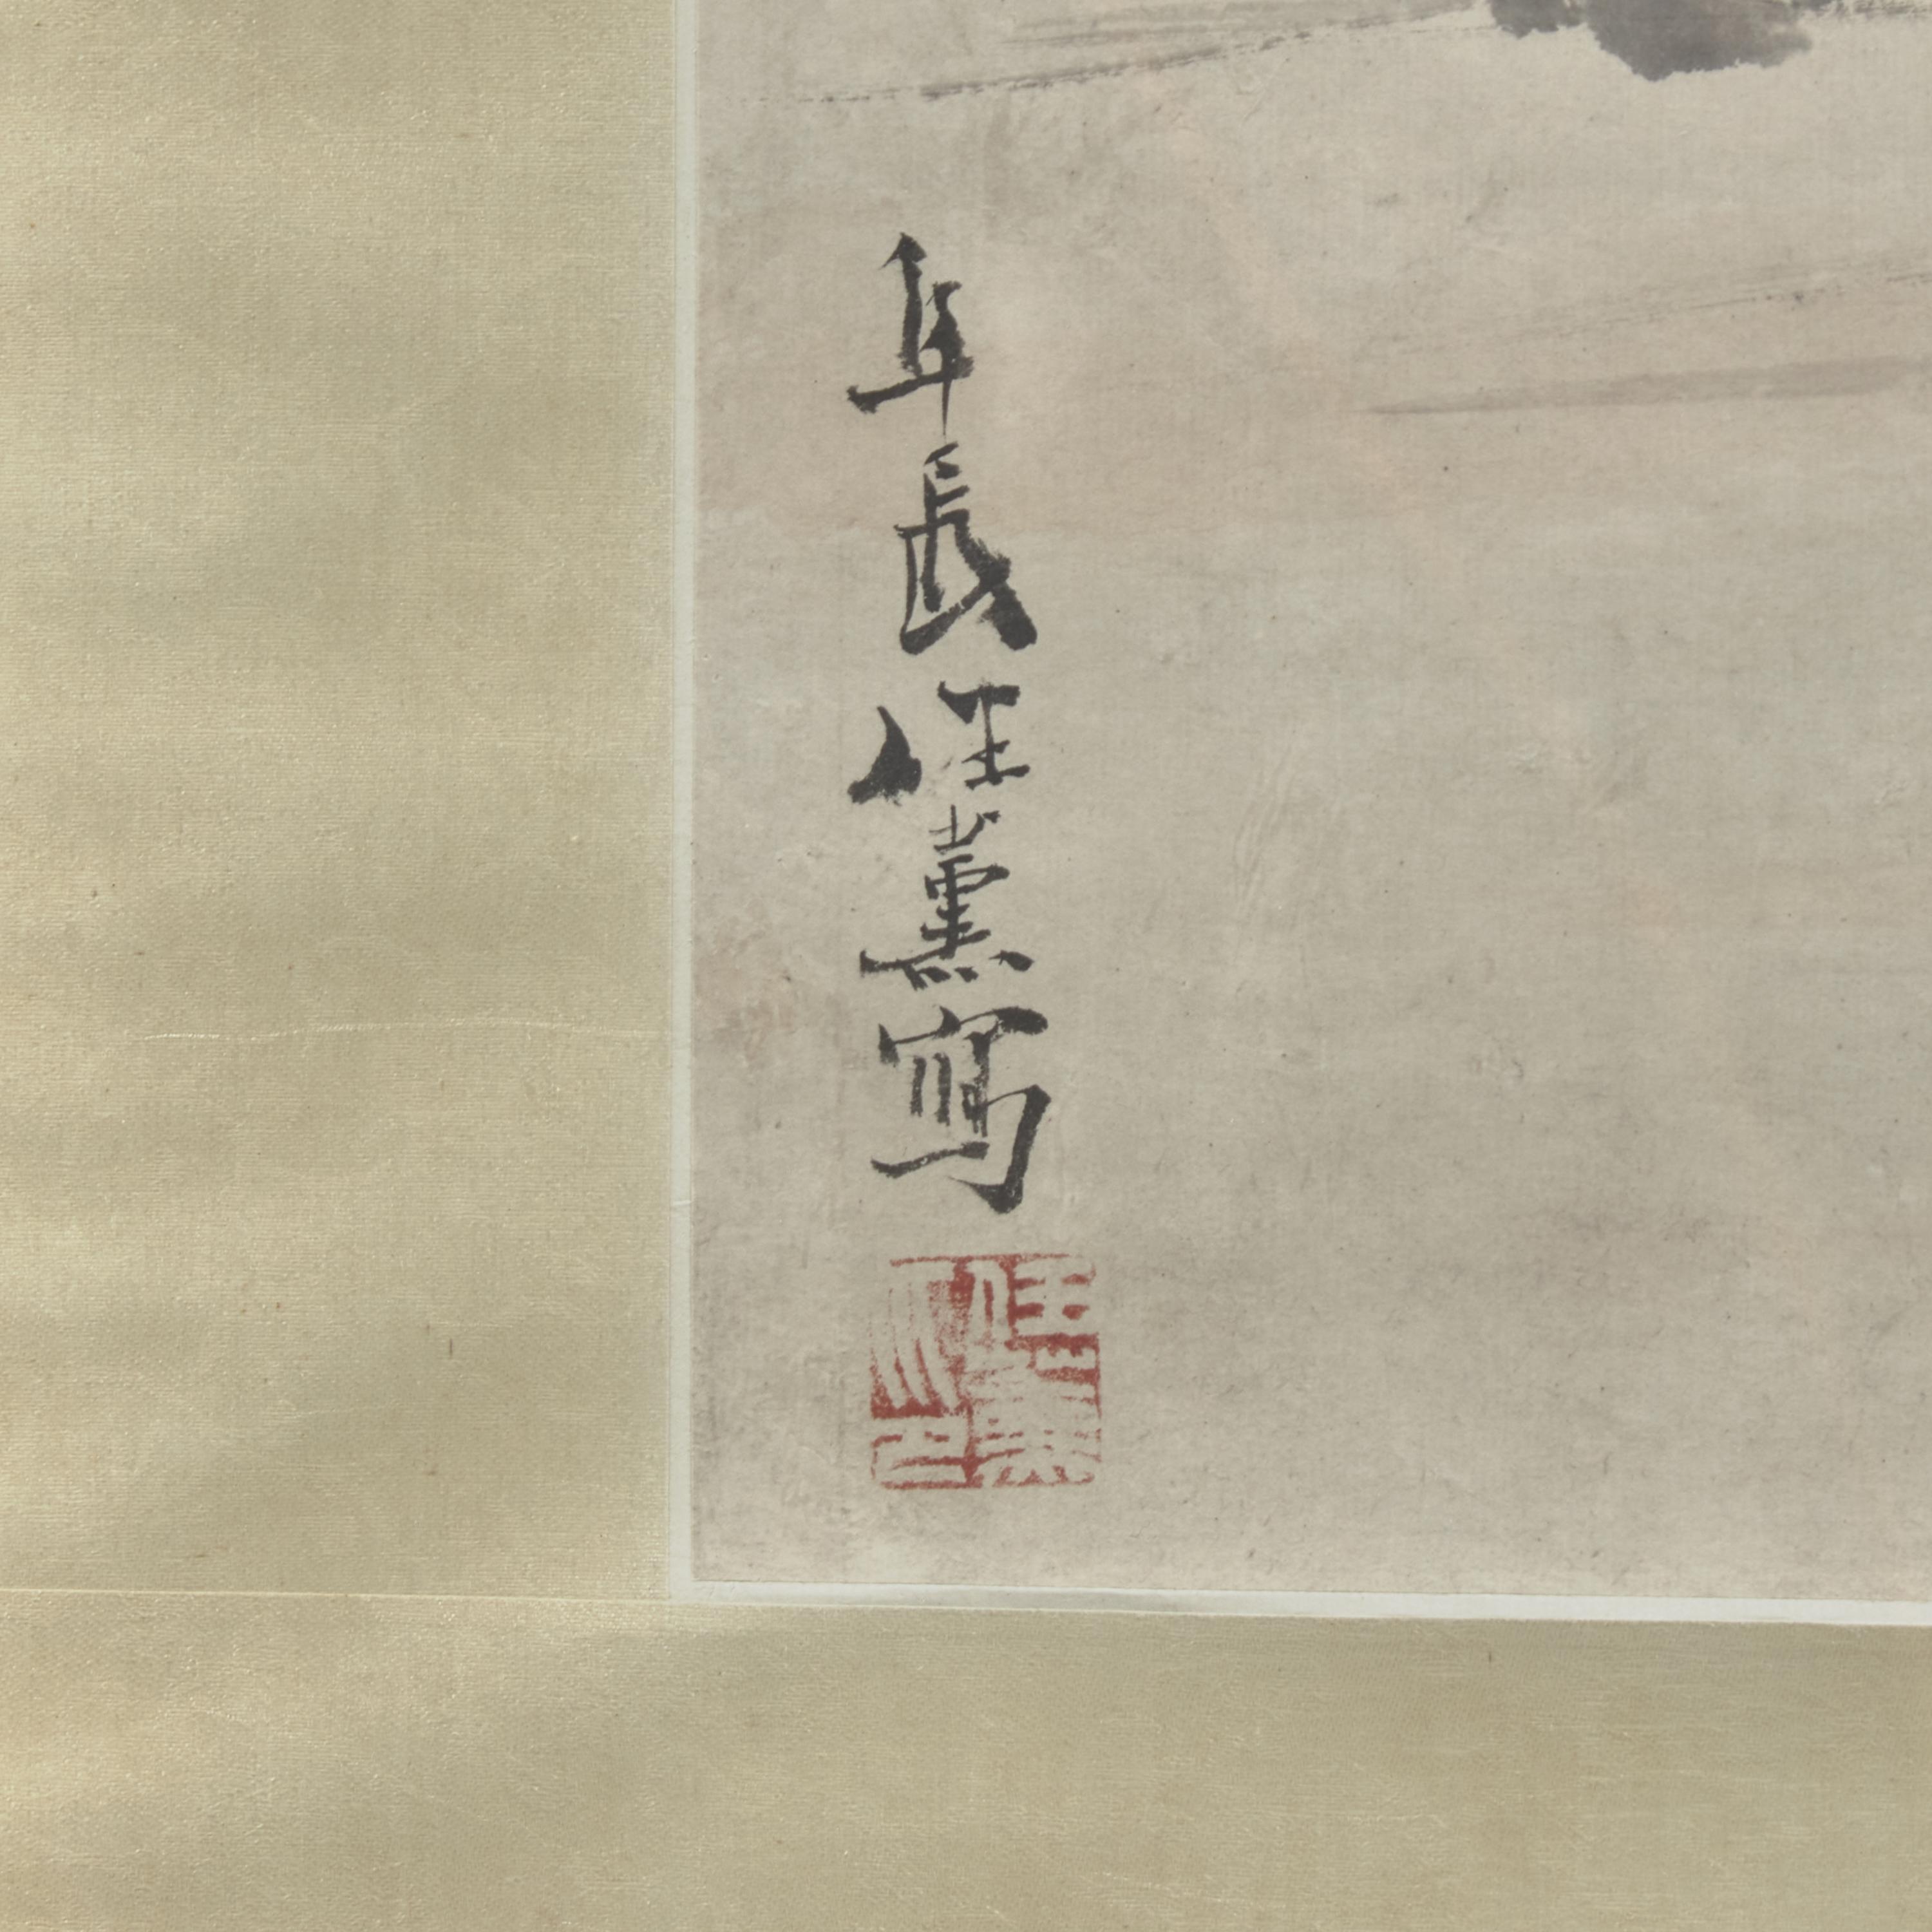 阜長任薰寫
任薰之印